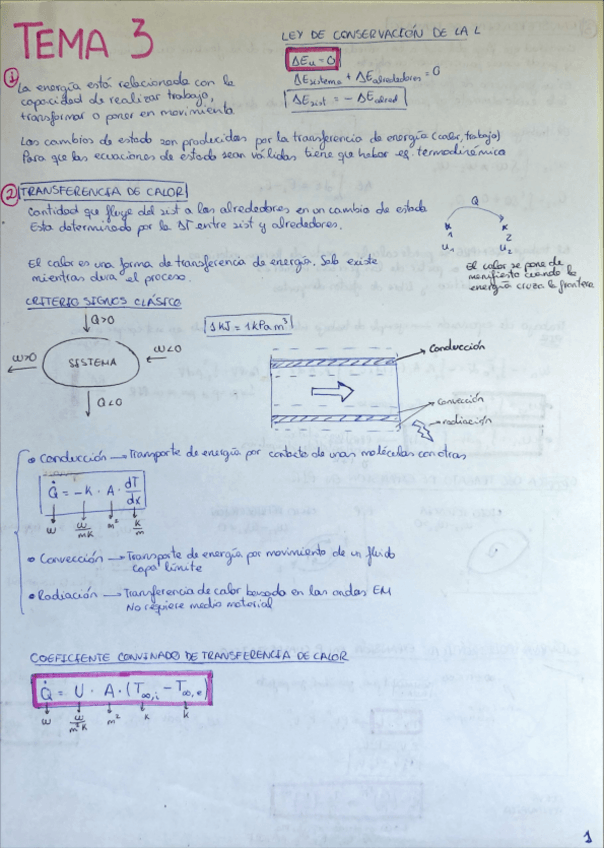 TEMA 3
LEY DE CONSERVACIÓN DE LA L
ΔEu = 0
ΔEsistema + ΔEalrededores = 0
ΔEsist = - ΔEalred
1
La energía está relacionada con la
capacidad de realizar trabajo,
transformar o poner en movimiento
Los cambios de estado son producidos por la transferencia de energía (calor, trabajo)
Para que las ecuaciones de estado sean válidas tiene que haber eq. termodinámico
2 TRANSFERENCIA DE CALOR
Cantidad que fluye del sist a los alrededores en un cambio de estado
Esta determinado por la ΔT entre sist y alrededores.
Q
1
2
U1
U2
El calor es una forma de transferencia de energía. Solo existe
mientras dura el proceso.
El calor se pone de
manifiesto cuando la
energía cruza la frontera
CRITERIO SIGNOS CLÁSICO
Q>0
1 kJ = 1 kPa m³
W>0
SISTEMA
W<0
Q<0
conducción
convección
radiación
• Conducción → Transporte de energía por contacto de unas moléculas con otras
Q̇ = -K · A · dT/dx
W
W/mK
m²
K/m
• Convección → Transporte de energía por movimiento de un fluido
capa límite
• Radiación → Transferencia de calor basada en las ondas EM
No requiere medio material
COEFICIENTE CONVINADO DE TRANSFERENCIA DE CALOR
Q̇ = U · A · (T∞,i - T∞,e)
W
W/m²K
m²
K
K
1